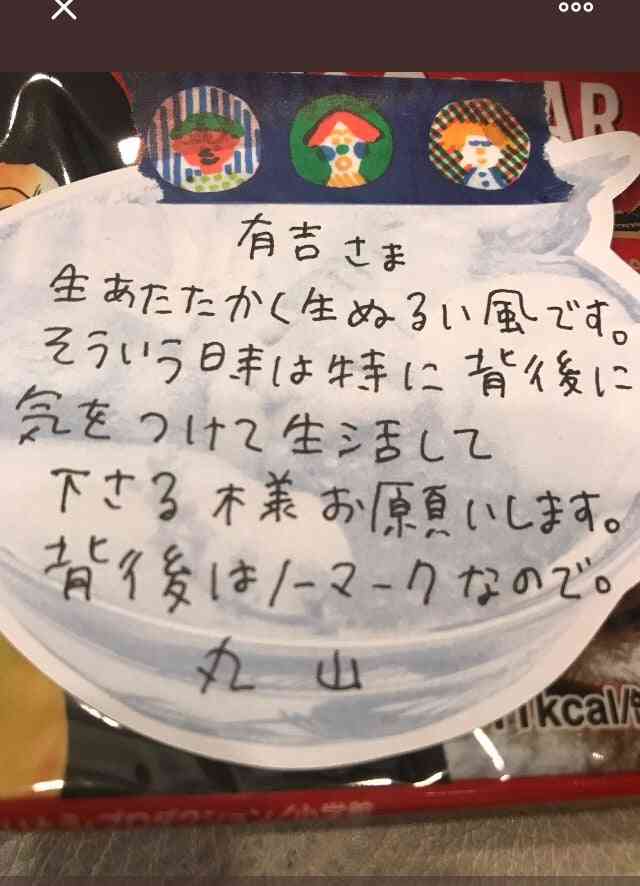 有吉さま
生あたたかく生ぬるい風です。
そういう日は特に背後に
気をつけて生活して
下さる様お願いします。
背後はノーマークなので。
丸山
kcal/
プロダクション/小学館